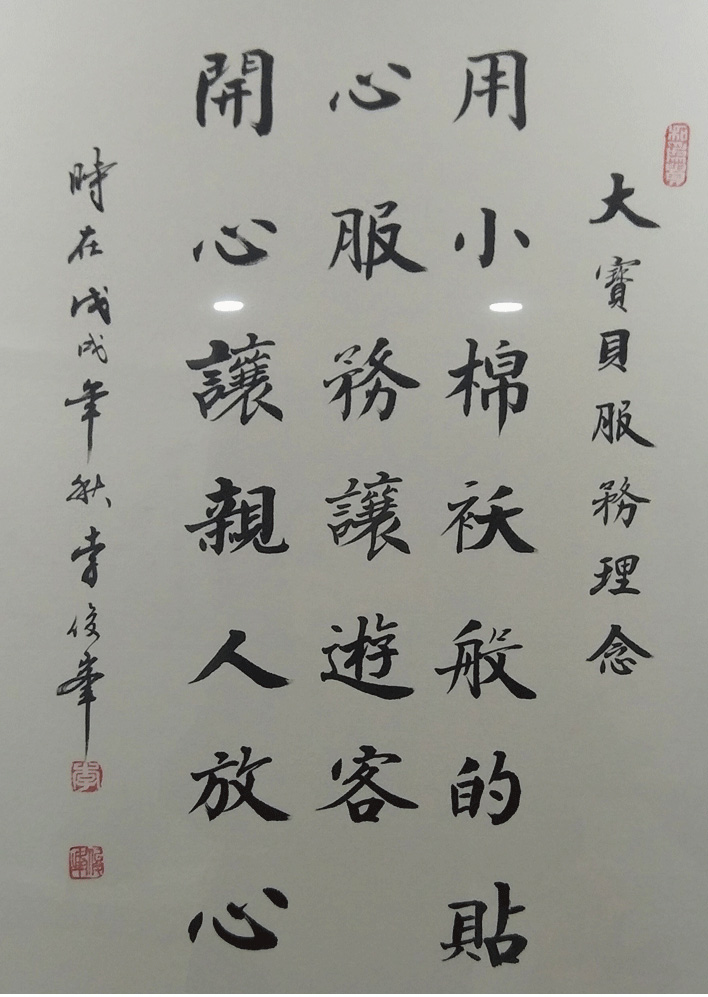 大寶貝服務理念
用小棉袄般的貼
心服務讓遊客
開心讓親人放心
時在戊戌年秋李俊峯
李